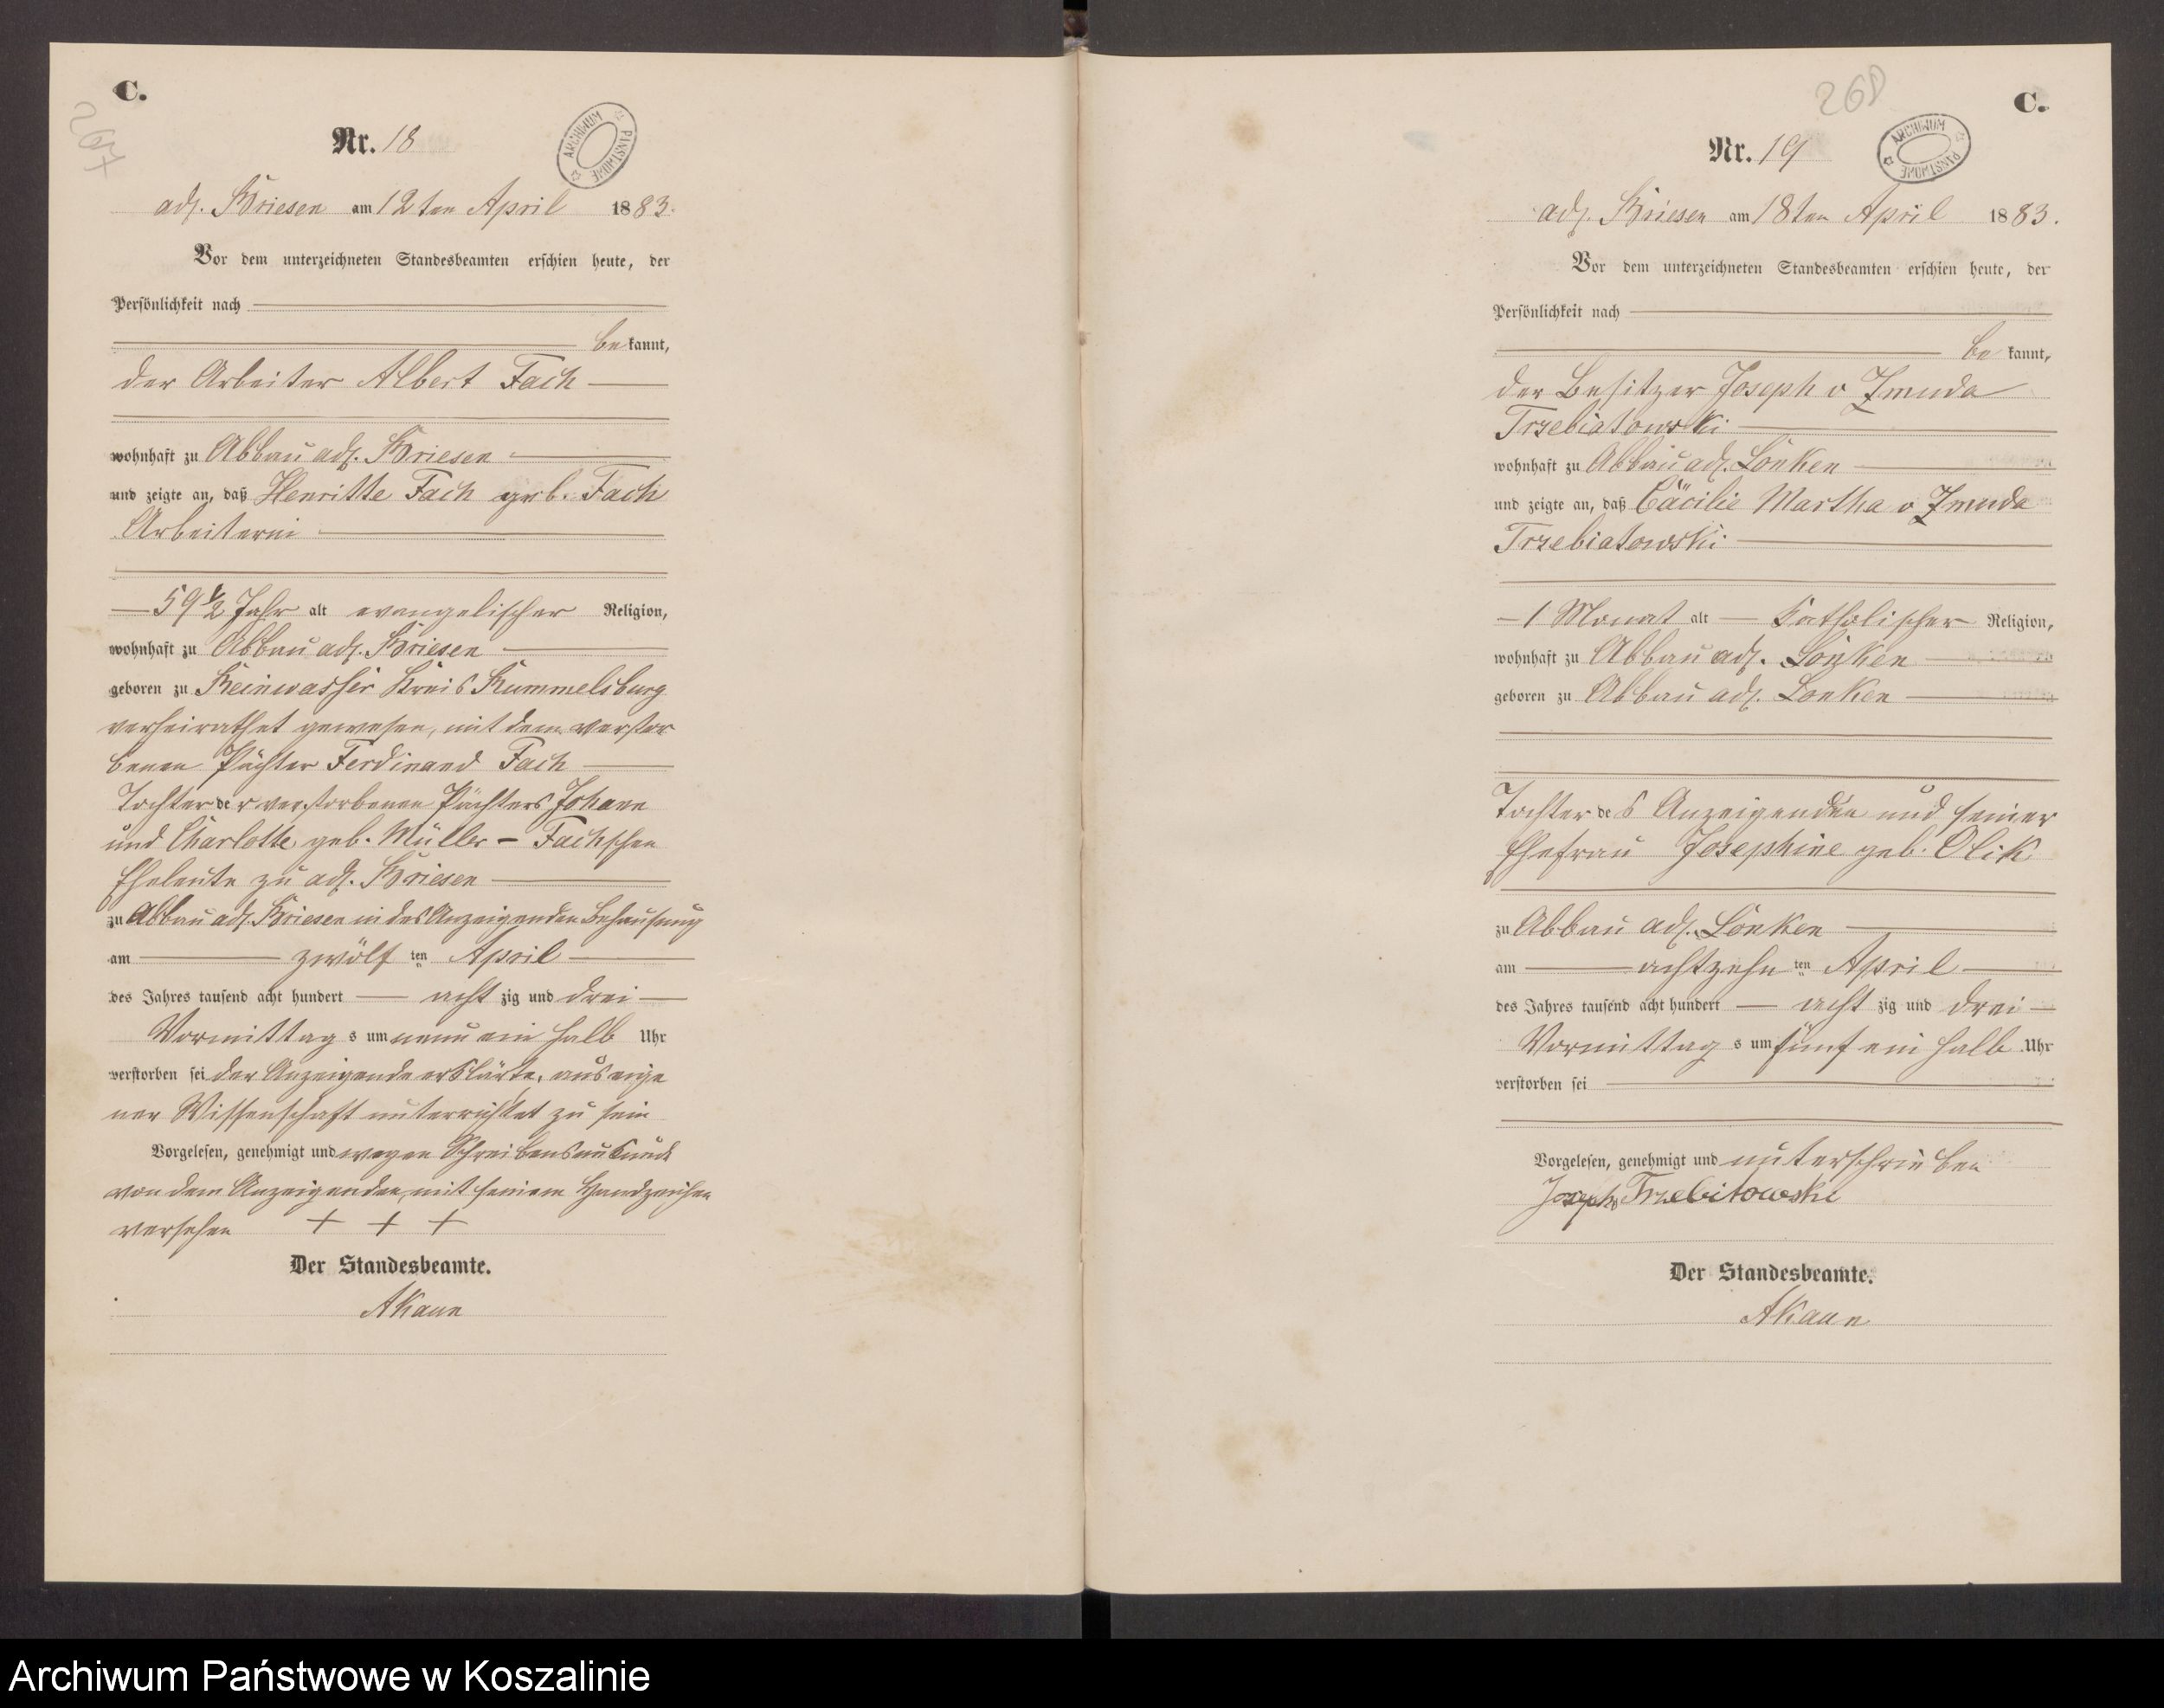 C.
267
Nr. 18
ARCHIWUM PAŃSTWOWE
adl. Briesen am 12ten April 1883.
Vor dem unterzeichneten Standesbeamten erschien heute, der
Persönlichkeit nach
be kannt,
der Arbeiter Albert Fach
wohnhaft zu Abbau adl. Briesen
und zeigte an, daß Henritte Fach geb. Fach
Arbeiterin
59 1/2 Jahr alt evangelischer Religion,
wohnhaft zu Abbau adl. Briesen
geboren zu Reinwasser Kreis Rummelsburg
verheirathet gewesen, mit dem verstor
benen Pächter Ferdinand Fach
Tochter der verstorbenen Pächters Johann
und Charlotte geb. Müller - Fachschen
Eheleute zu adl. Briesen
zu Abbau adl. Briesen in des Anzeigenden Behausung
am zwölf ten April
des Jahres tausend acht hundert acht zig und drei
Vormittag s um neun ein halb Uhr
verstorben sei der Anzeigende erklärte, aus eige
ner Wissenschaft unterrichtet zu sein
Vorgelesen, genehmigt und wegen Schreibensunkunde
von dem Anzeigenden mit seinem Handzeichen
versehen + + +
Der Standesbeamte.
AKaun
C.
268
Nr. 19
ARCHIWUM PAŃSTWOWE
adl. Briesen am 18ten April 1883.
Vor dem unterzeichneten Standesbeamten erschien heute, der
Persönlichkeit nach
be kannt,
der Besitzer Joseph v Zmuda
Trzebiatowski
wohnhaft zu Abbau adl. Lonken
und zeigte an, daß Cäcilie Martha v Zmuda
Trzebiatowski
1 Monat alt Katholischer Religion,
wohnhaft zu Abbau adl. Lonken
geboren zu Abbau adl. Lonken
Tochter des Anzeigenden und seiner
Ehefrau Josephine geb. Olik
zu Abbau adl. Lonken
am achtzehn ten April
des Jahres tausend acht hundert acht zig und drei
Vormittag s um fünf ein halb Uhr
verstorben sei
Vorgelesen, genehmigt und unterschrieben
Joseph Trzebitowski
Der Standesbeamte.
AKaun
Archiwum Państwowe w Koszalinie